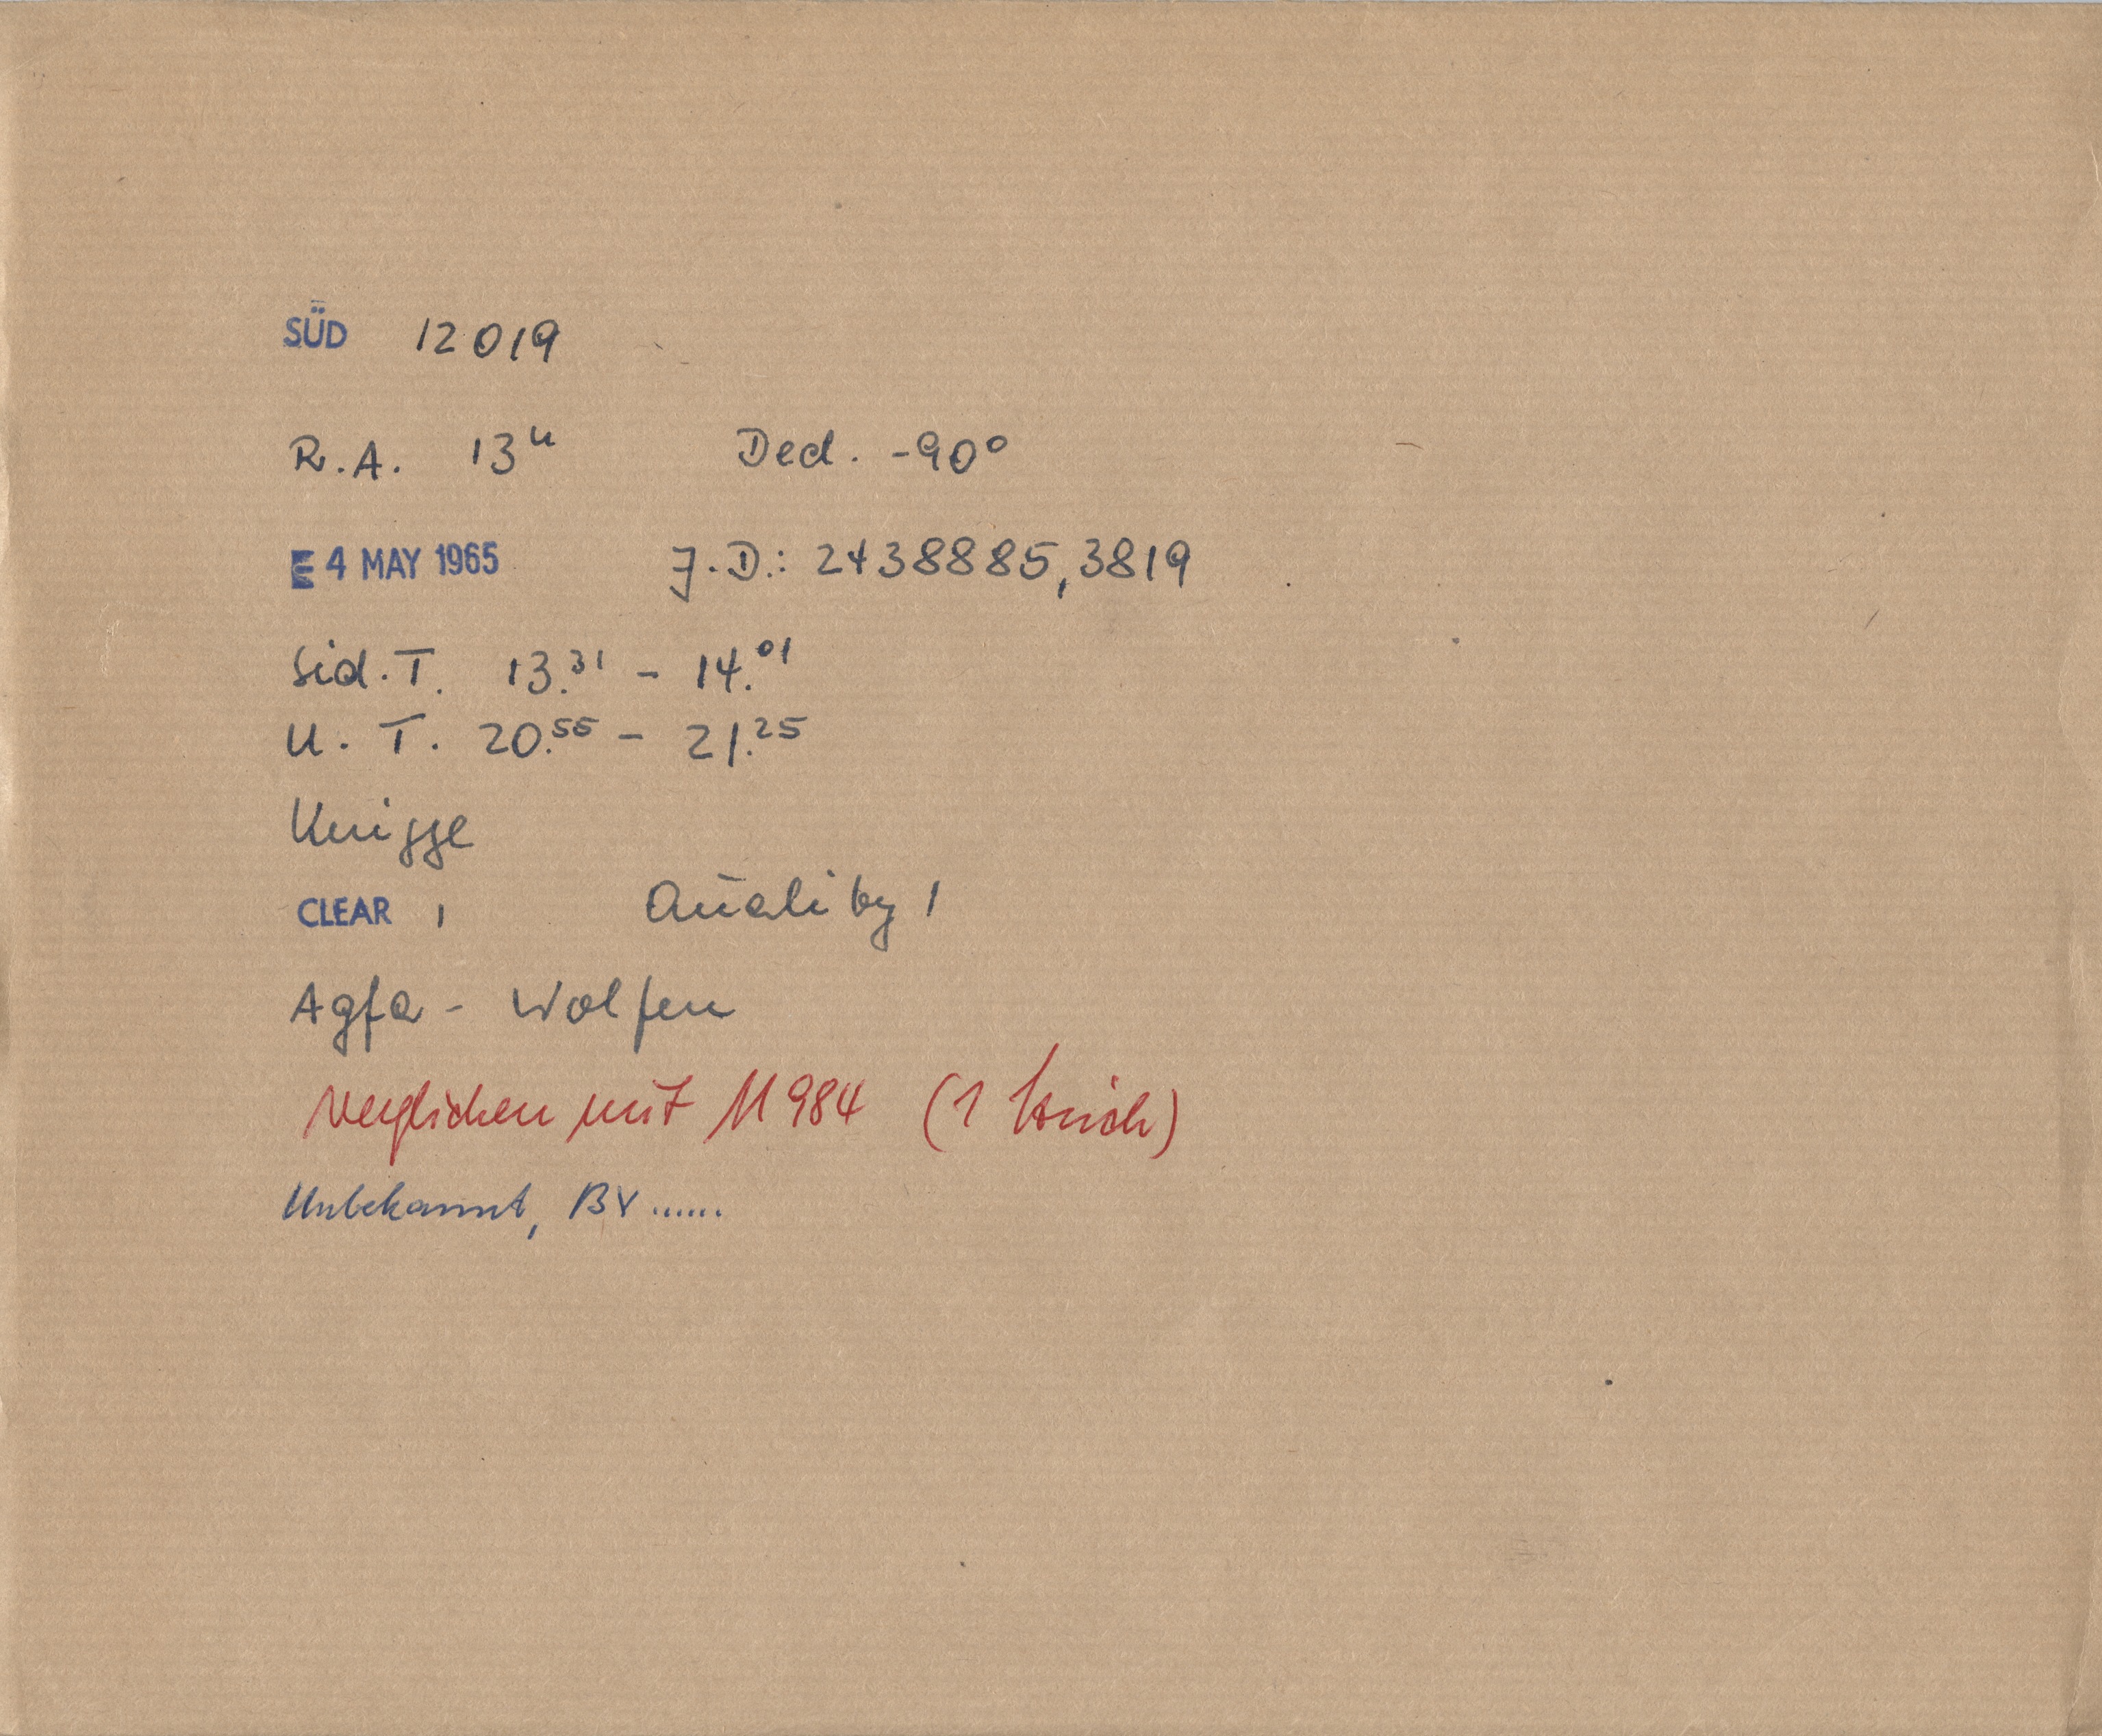 SÜD 12019
R.A. 13ʰ Decl. -90°
E 4 MAY 1965 J.D.: 2438885,3819
Sid.T. 13.³¹ - 14.⁰¹
U.T. 20.⁵⁵ - 21.²⁵
Knigge
CLEAR 1 Quality 1
Agfa - Wolfen
Verglichen mit 11984 (1 Strich)
Unbekannt, BV ......